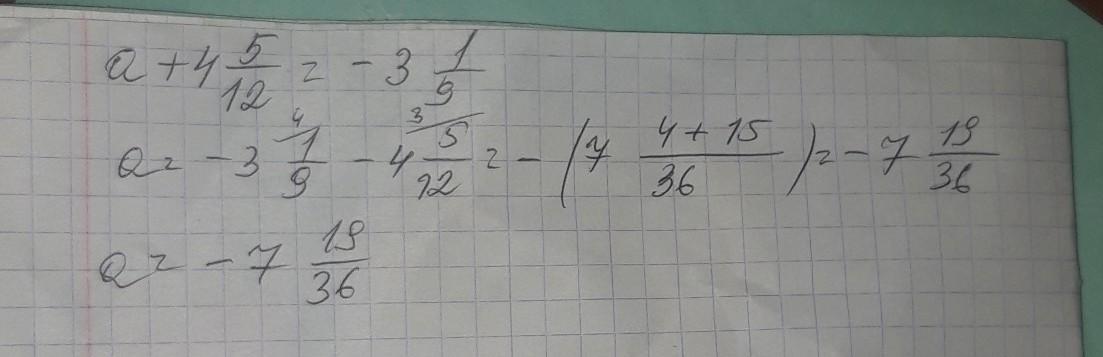 a + 4 5/12 = - 3 1/9
a = - 3 1/9 (4) - 4 5/12 (3) = - (7 (4 + 15)/36) = - 7 19/36
a = - 7 19/36